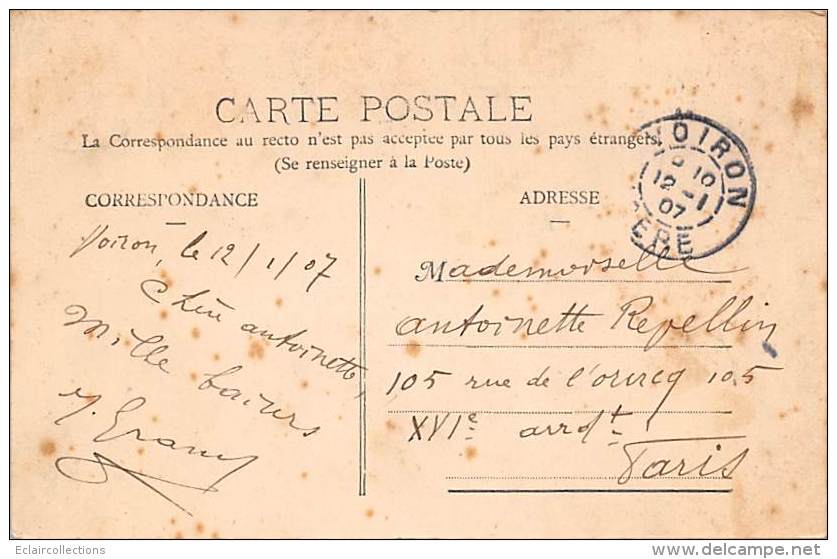 CARTE POSTALE
La Correspondance au recto n'est pas acceptee par tous les pays étrangers
(Se renseigner à la Poste)
CORRESPONDANCE
Voiron, le 12/1/07
Chère antoinette,
Mille baisers
ADRESSE
Mademoiselle
antoinette Repellin
105 rue de l'ourcq 105
XVIe arrdt
Paris
VOIRON
10
12 -1
07
ERE
Eclaircollections
© delcampe.net